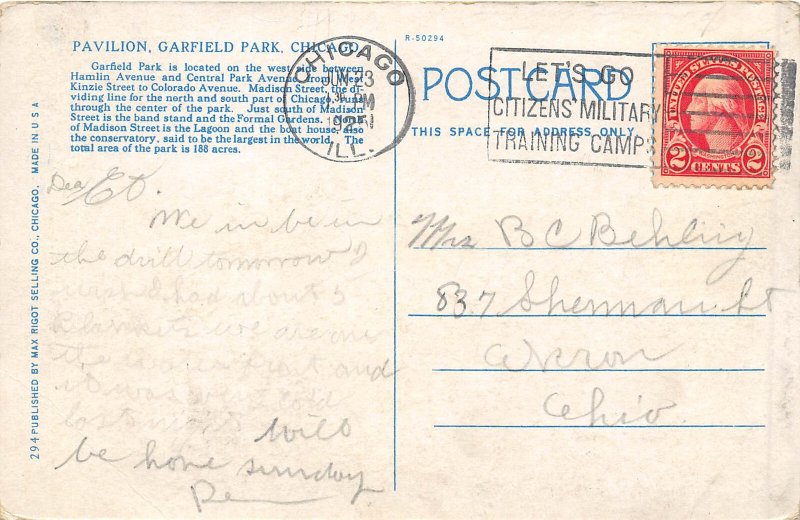 PAVILION, GARFIELD PARK, CHICAGO
Garfield Park is located on the west side between
Hamlin Avenue and Central Park Avenue, from West
Kinzie Street to Colorado Avenue. Madison Street, the di-
viding line for the north and south part of Chicago, runs
through the center of the park. Just south of Madison
Street is the band stand and the Formal Gardens. North
of Madison Street is the Lagoon and the boat house, also
the conservatory, said to be the largest in the world. The
total area of the park is 188 acres.
Dear Ed.
We in be in
the drill tomorrow
I had about 3
Blankets we are on
the water front and
it was very
last
will
be home sunday
294 PUBLISHED BY MAX RIGOT SELLING CO., CHICAGO. MADE IN U S A
R-50294
CHICAGO
JUN 23
PM
1925
ILL.
LET'S GO
CITIZENS' MILITARY
TRAINING CAMPS
POSTCARD
THIS SPACE FOR ADDRESS ONLY
UNITED STATES POSTAGE
2 CENTS 2
Mrs B C Behling
837 Sherman St
Akron
Ohio